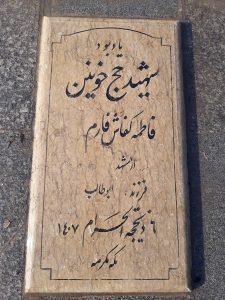 یادبود
شهید حج خونین
فاطمه کفاش فارم
از مشهد
فرزند: ابوطالب
۶ ذیحجة الحرام ۱۴۰۷
مکه مکرمه